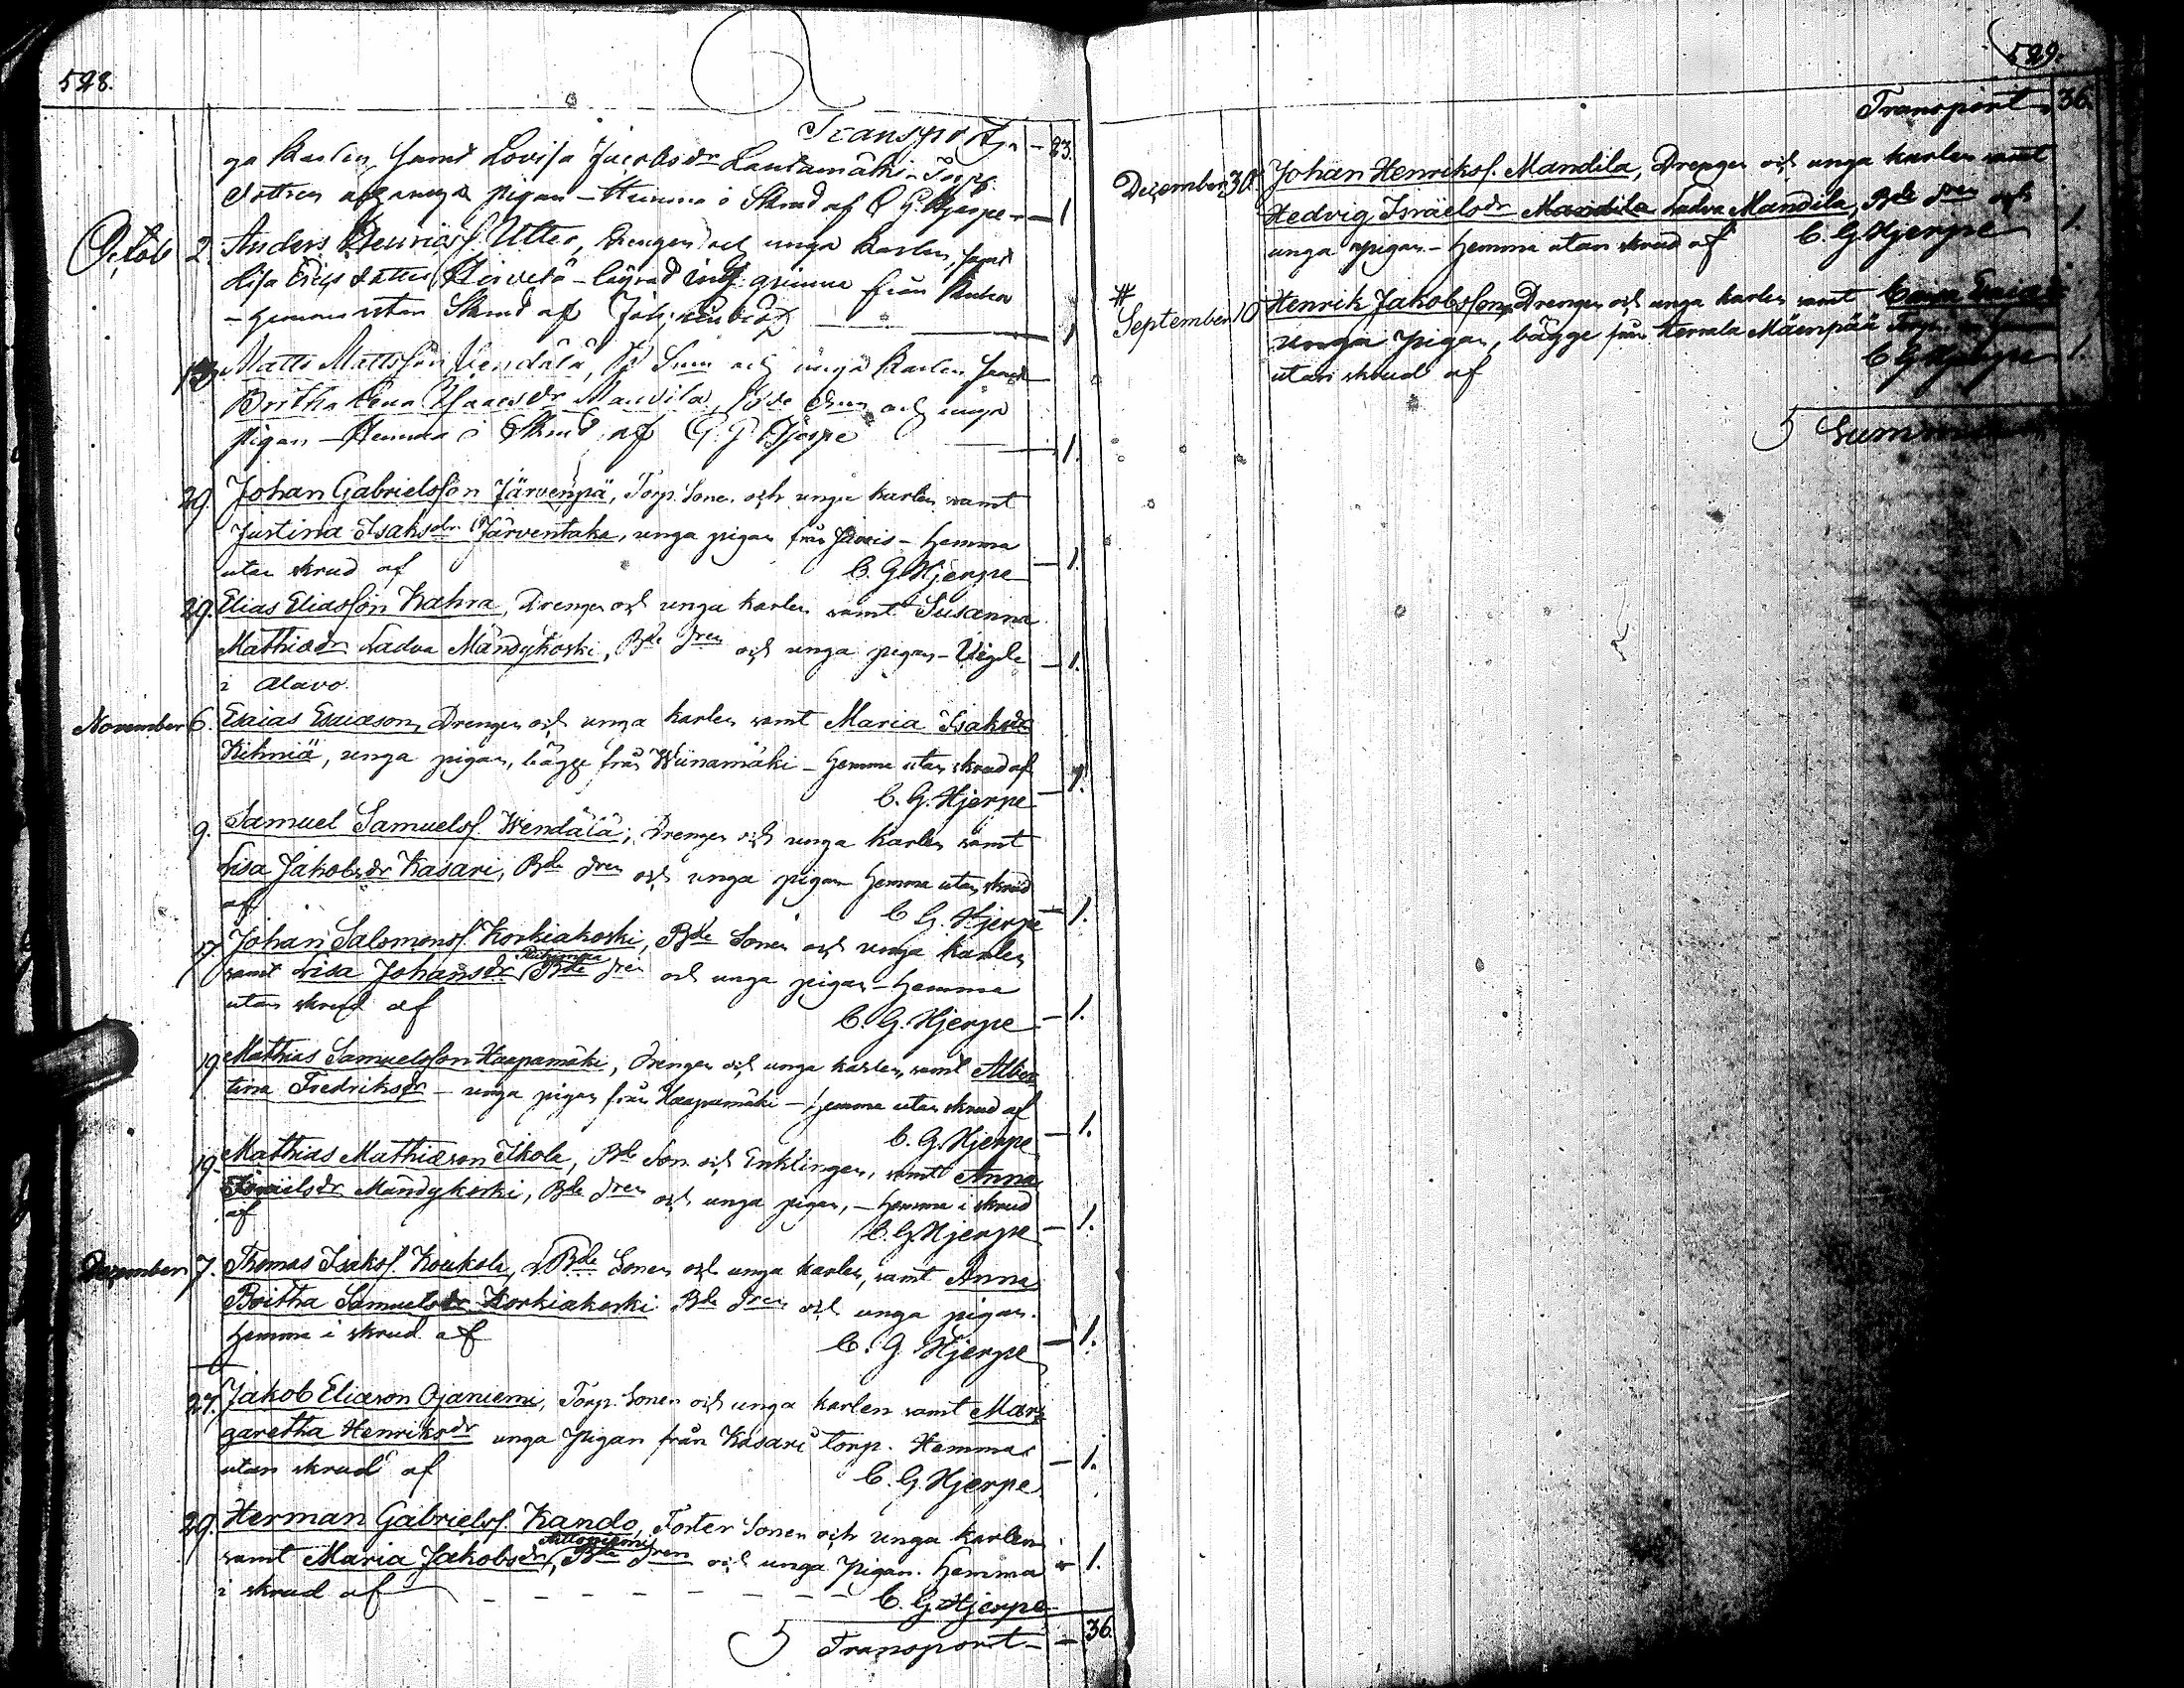 528.
Transport 23.
ga Karlen, samt Lovisa Jacobsdr Lautamäki Torp.
Dottren och unga pigan - Hemma i Skrud af C G Hjerpe - 1
Octob 2. Anders Henricss. Utter, Drengen och unga Karlen, samt
Lisa dotter Hirvelä
- Hemma utan Skrud af Joh. 1
Matts Mattsson Vendälä, och unga Karlen samt
Britha Lena Isaacsdr Mandila, Bde och unga
pigan - Hemma i Skrud af C. G Hjerpe 1.
29. Johan Gabrielsson Järvenpä, Torp. Sonen och unga karlen samt
Justina Isaksdr Järventaka, unga pigan från - hemma
utan skrud af C. G. Hjerpe - 1.
29. Elias Eliasson Kahra, Drengen och unga karlen samt Susanna
Mathiædr Ladva Mändykoski, Bde Dren och unga pigan - Vigde - 1.
i Alavo.
November 6. Esaias Esaiason, Drengen och unga karlen samt Maria Isaksdr
Kihniä, unga pigan, bägge från Wiinamäki - hemma utan skrud af
C. G. Hjerpe - 1.
9. Samuel Samuelss. Wendälä, Drengen och unga karlen samt
Lisa Jakobsdr Kasari, Bde Dren och unga pigan hemma utan skrud
af C. G. Hjerpe - 1.
17. Johan Salomonss. Korkiakoski, Bde Sonen och unga karlen
samt Lisa Johansdr Bde Dren och unga pigan - hemma
utan skrud af C. G. Hjerpe - 1.
19. Mathias Samuelsson Haapamäki, Drengen och unga karlen, samt Alber-
tina Fredriksdr - unga pigan från Haapamäki - hemma utan skrud af
C. G. Hjerpe - 1.
19. Mathias Mathiæson Ikola, Bde Son och Enklingen, samt Anna
Israelsdr Mändykoski, Bde Dren och unga pigan, - hemma i skrud
af C. G. Hjerpe - 1.
December 7. Thomas Isakss. Koukola, Bde Sonen och unga karlen, samt Anna
Britha Samuelsdr Korkiakoski Bde Dren och unga pigan.
hemma i skrud af C. G Hjerpe - 1.
27. Jakob Eliæson Ojaniemi, Torp. Sonen och unga karlen samt Mar-
garetha Henriksdr unga pigan från Kasari torp. Hemma
utan skrud af C. G. Hjerpe - 1.
29. Herman Gabrielss. Kando, Foster Sonen och unga karlen
samt Maria Jakobsdr, Bde Dren och unga pigan. hemma - 1.
i skrud af - - - - - - C. G. Hjerpe
Transport - 36.
529.
Transport 36.
December 30. Johan Henrikss. Mandila, Drengen och unga karlen samt
Hedvig Israelsdr Mandila Ladva Mandila, Bde Dren och
unga pigan - hemma utan skrud af C. G. Hjerpe 1.
#
September 10 Henrik Jakobsson, Drengen och unga karlen samt
unga pigan, bägge från Mäenpää
utan skrud af C G Hjerpe 1.
Summa